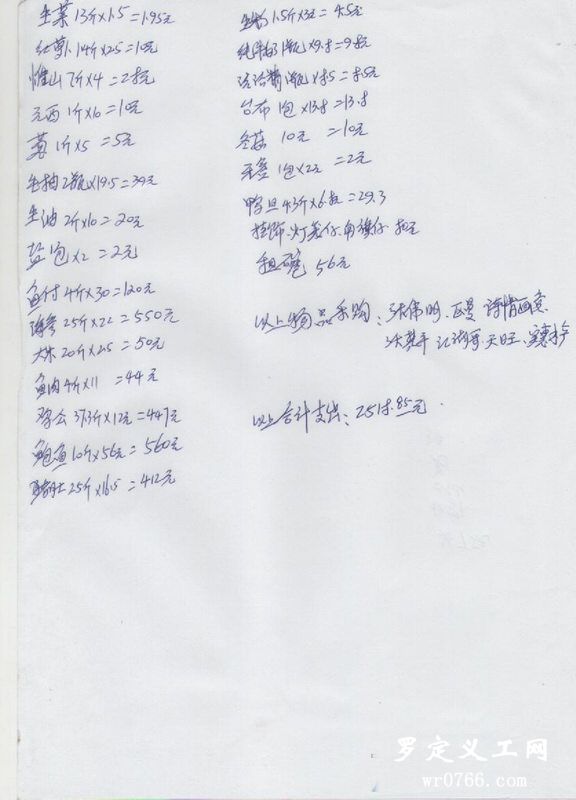 生菜 13斤×1.5=1.95元
红萝卜 4斤×2.5=10元
淮山 7斤×4=28元
元西 1斤×10=10元
葱 1斤×5=5元
生抽 2瓶×19.5=39元
生油 2斤×10=20元
盐 包×2=2元
鱼付 4斤×30=120元
25斤×22=550元
20斤×2.5=50元
鱼肉 4斤×11=44元
鸡公 37.3斤×12元=447元
鲍鱼 10斤×56元=560元
猪肚 25斤×16.5=412元
生粉 1.5斤×3元=4.5元
1瓶×9.8=9.8元
1瓶×8.5=8.5元
台布 1包×13.8=13.8
冬菇 10元=10元
1包×2元=2元
鸭旦 4.3斤×6.8元=29.3
挂饰.灯笼仔.角旗仔
租碗 56元
以上物品采购:张伟明、诗情画意
江湖哥 天旺
以上合计支出:2518.85元.
罗定义工网
wr0766.com